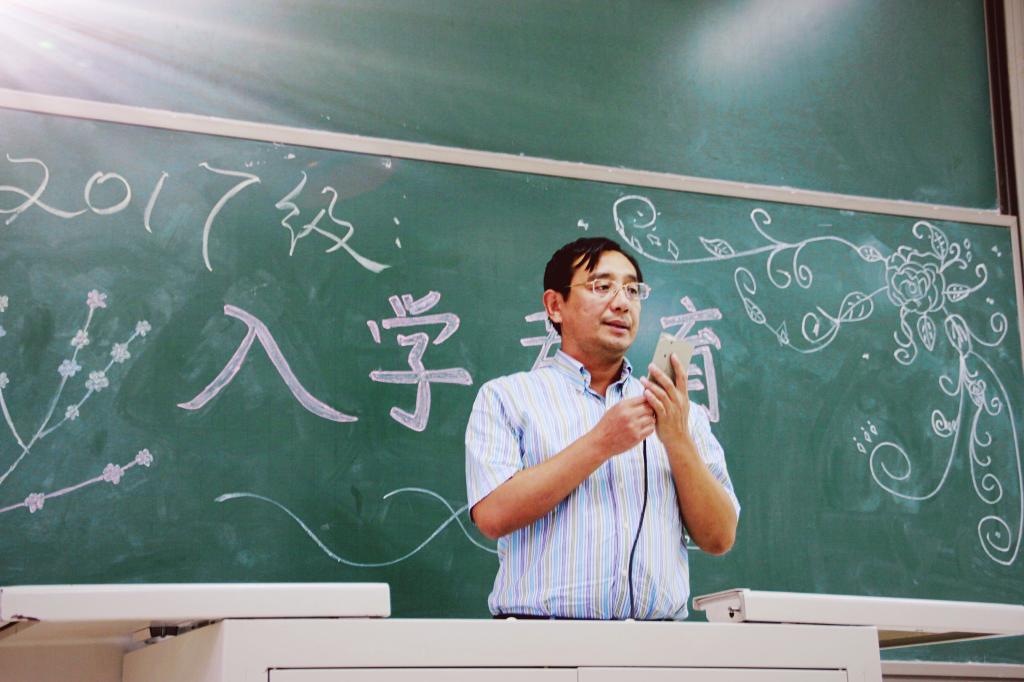 2017级:
入学教育